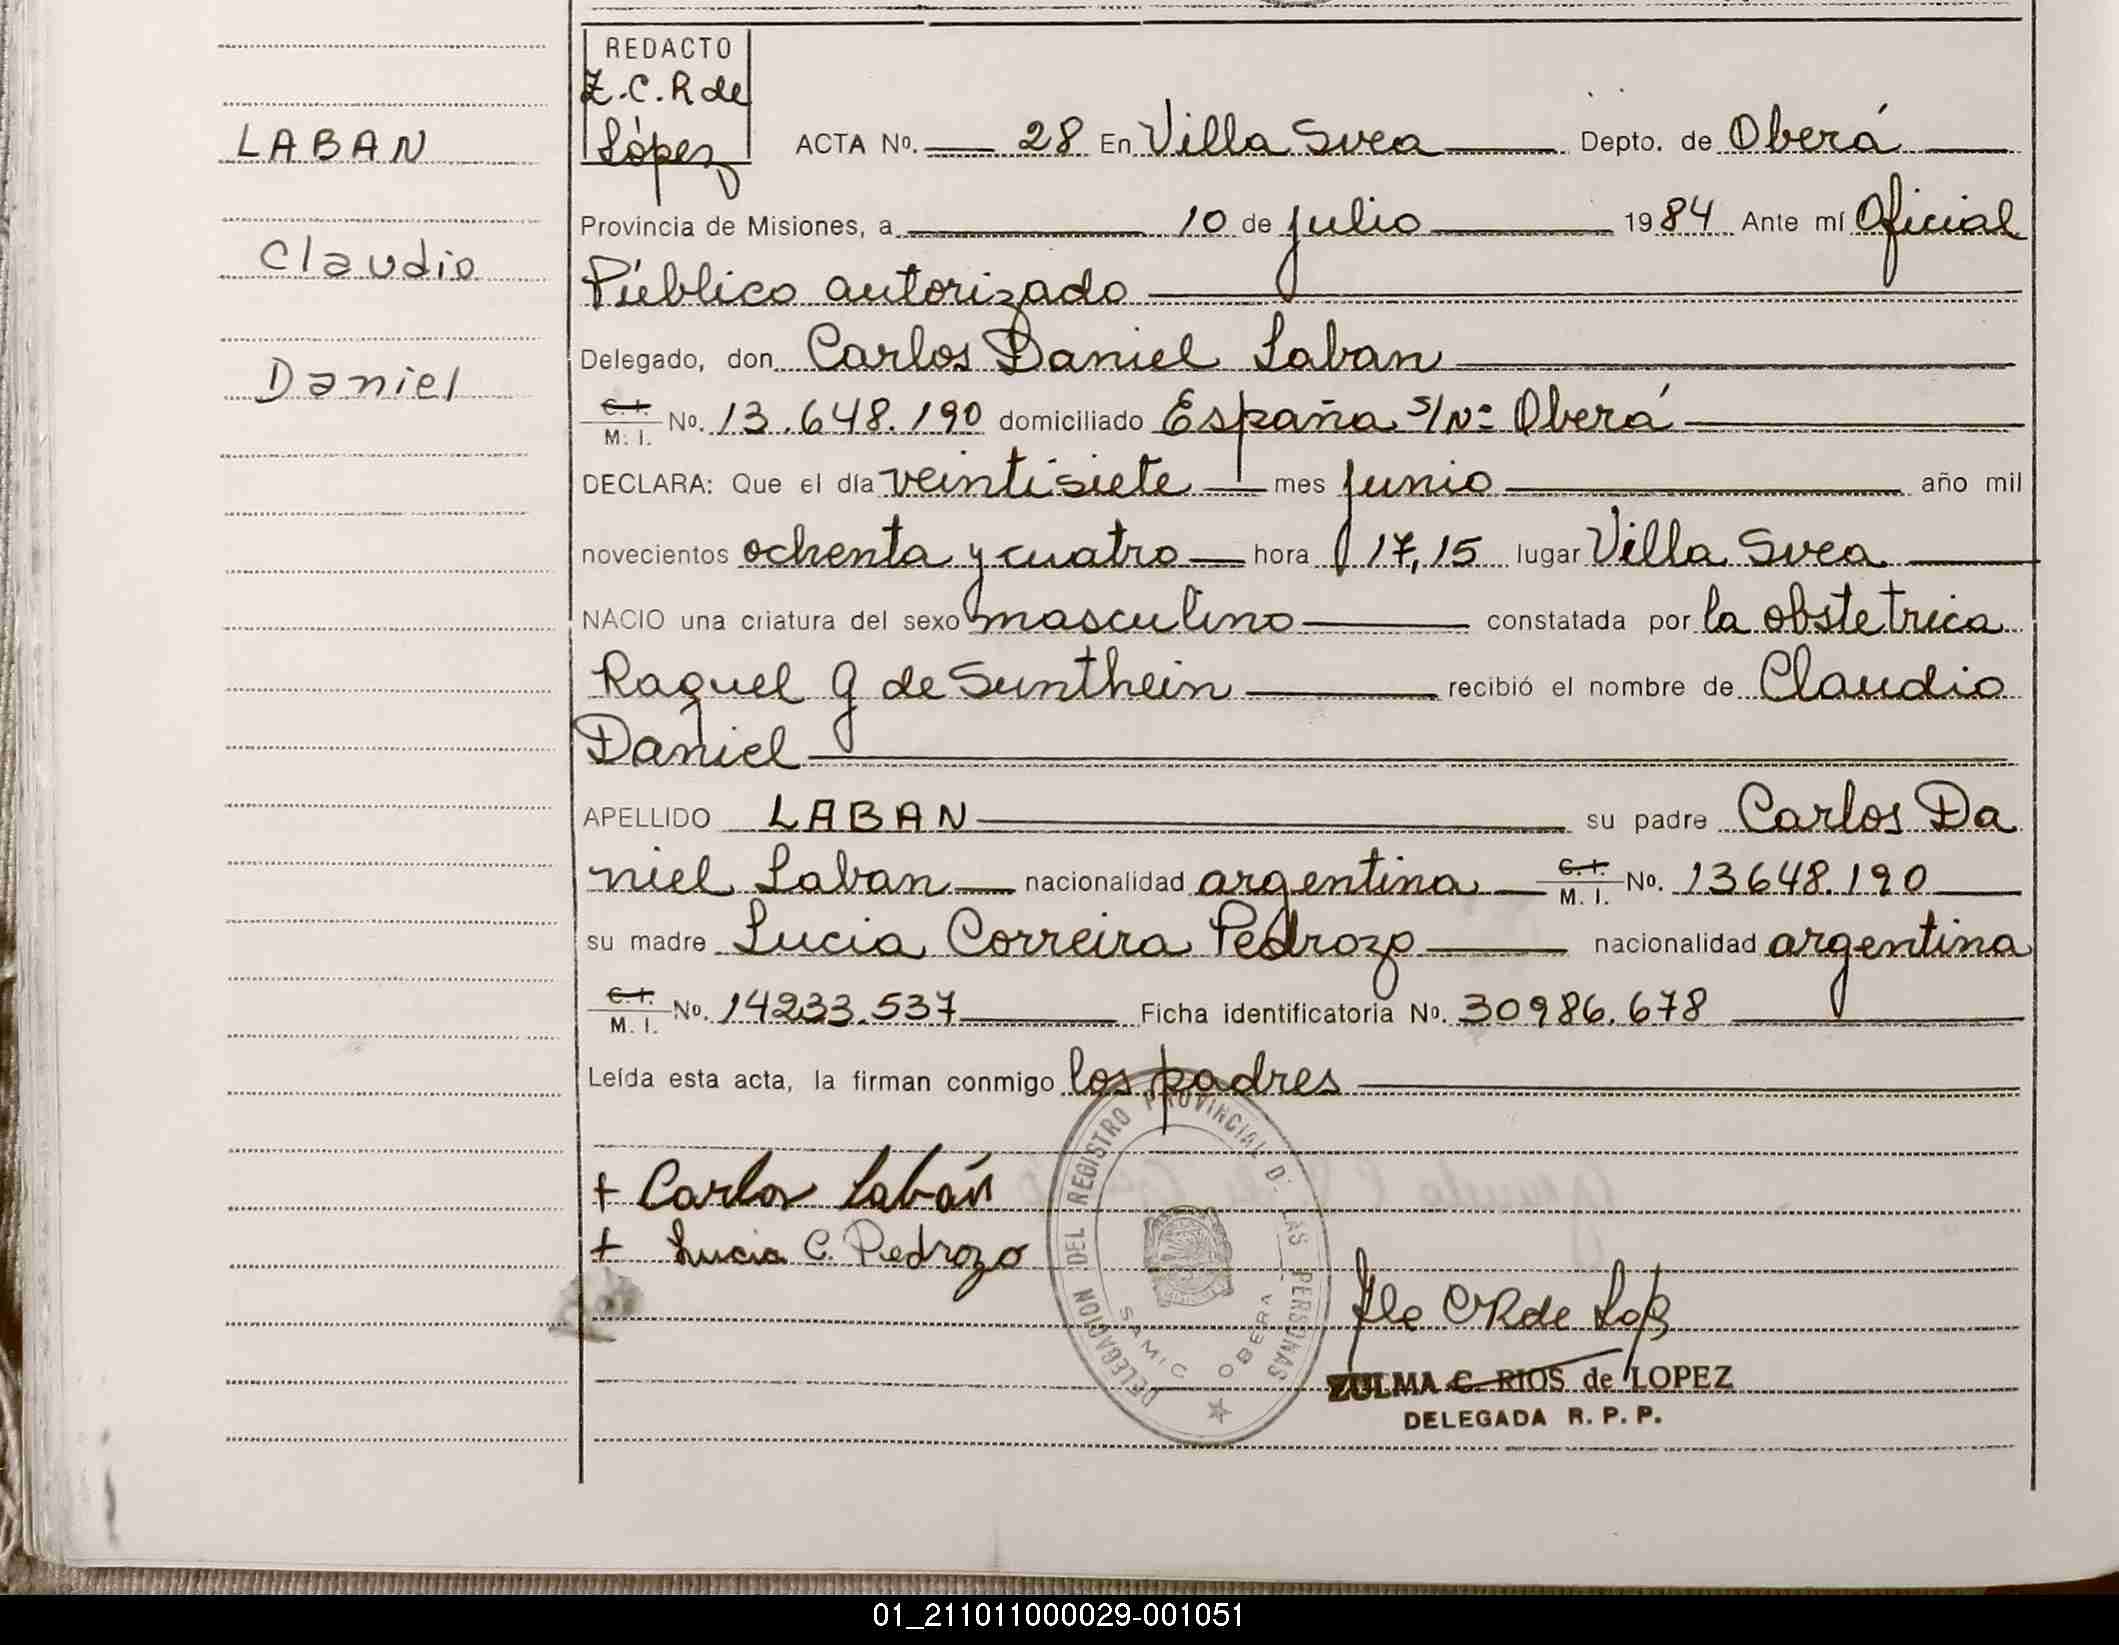 LABAN
Claudio
Daniel
REDACTO
Z.C.R de
López
ACTA No. 28 En Villa Svea Depto. de Oberá
Provincia de Misiones, a 10 de julio 1984 Ante mí Oficial
Público autorizado
Delegado, don Carlos Daniel Laban
C.I. M.I. No. 13.648.190 domiciliado España s/Nº Oberá
DECLARA: Que el día veintisiete mes junio año mil
novecientos ochenta y cuatro hora 17,15 lugar Villa Svea
NACIO una criatura del sexo masculino constatada por la obstetrica
Raquel G de Sunthein recibió el nombre de Claudio
Daniel
APELLIDO LABAN su padre Carlos Da
niel Laban nacionalidad argentina C.I. M.I. No. 13648.190
su madre Lucia Correira Pedrozo nacionalidad argentina
C.I. M.I. No. 14233.537 Ficha identificatoria No. 30986.678
Leída esta acta, la firman conmigo los padres
+ Carlos Labán
+ Lucia C. Pedrozo
DELEGACION DEL REGISTRO PROVINCIAL D: LAS PERSONAS
SAMIC OBERA
ZULMA C. RIOS de LOPEZ
DELEGADA R. P. P.
01_211011000029-001051